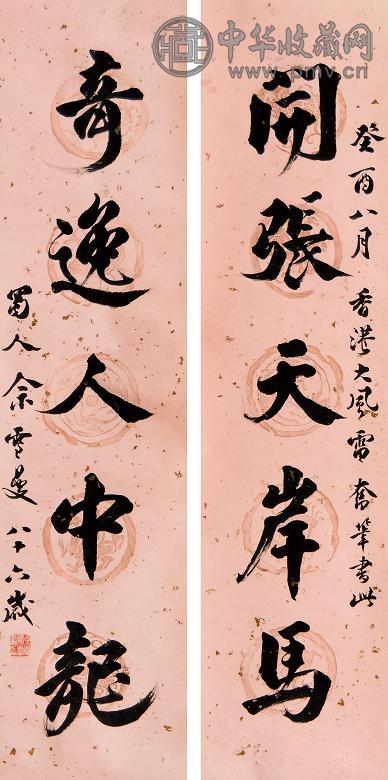 中华收藏网
www.pmv.cn
癸酉八月香港大風雷奮筆書此
開張天岸馬
奇逸人中龍
蜀人余雪曼八十六歲